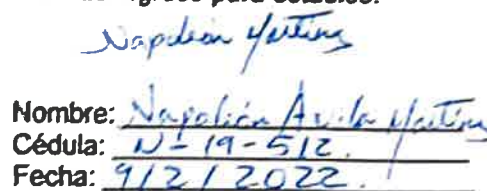 para
Napoleón Martínez
Nombre: Napoleón Avila Martínez
Cédula: N-19-512.
Fecha: 9/2/2022.